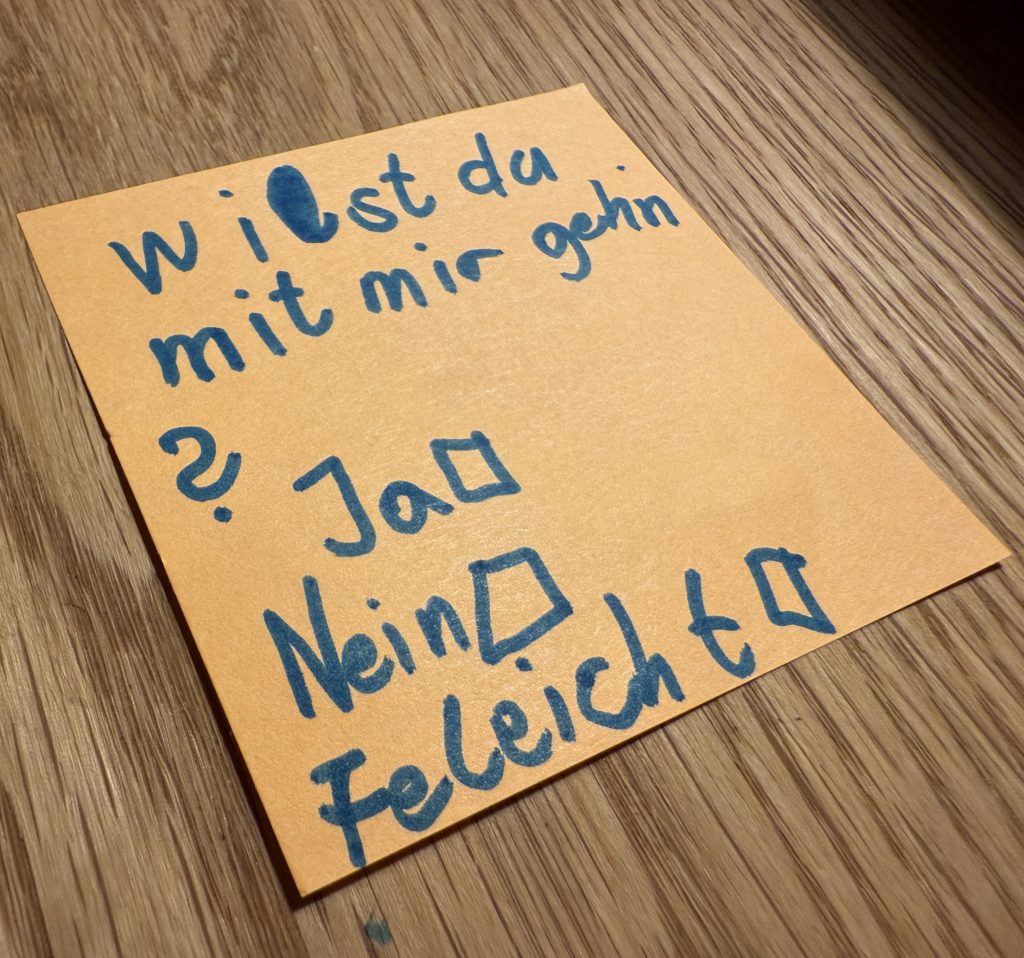 wilst du
mit mir gehn
?
Ja ☐
Nein ☐
Feleicht ☐